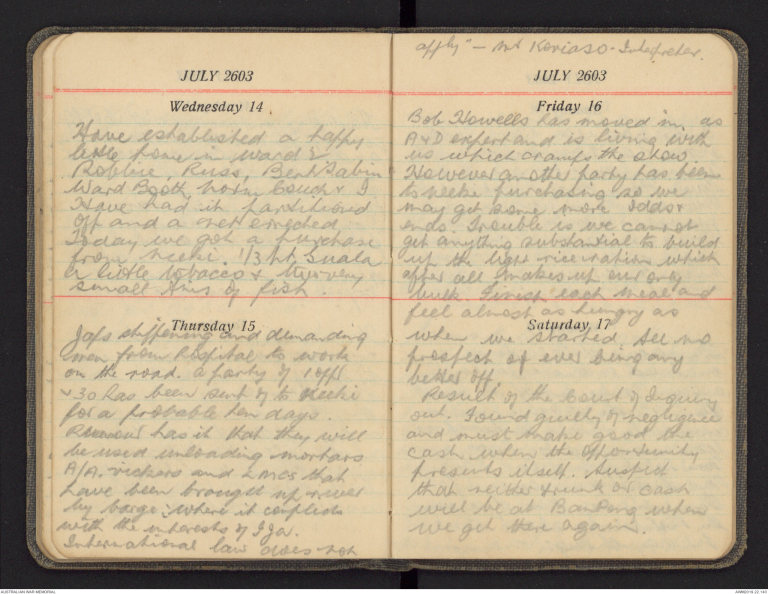 JULY 2603
Wednesday 14
Have established a happy
little home in ward 2
Robbie, Russ, Bert Sabin
Ward Booth, Norm Couch & I
Have had it partitioned
off and a net erected.
Today we got a purchase
from Neeki. 1/3 pt Guala
a little tobacco & two very
small tins of fish.
Thursday 15
Japs stiffening and demanding
men from hospital to work
on the road. A party of 1 offr
& 30 has been sent of to Neeki
for a probable ten days.
Rumour has it that they will
be used unloading mortars
A/A. vickers and LMGs that
have been brought up river
by barge: where it conflicts
with the interests of IJA.
International law does not
apply" – Mr Koriaso. Interpreter.
JULY 2603
Friday 16
Bob Howells has moved in as
A & D expert and is living with
us which cramps the show.
However another party has been
to Neeki purchasing so we
may get some more odds &
ends. Trouble is we cannot
get anything substantial to build
up the light rice ration which
after all makes up our only
bulk. Finish each meal and
feel almost as hungry as
Saturday 17
when we started. See no
prospect of ever being any
better off.
Result of the Court of Inquiry
out. Found guilty of negligence
and must make good the
cash when the opportunity
presents itself. Suspect
that neither trunk or cash
will be at Bampong when
we get there again.
AUSTRALIAN WAR MEMORIAL